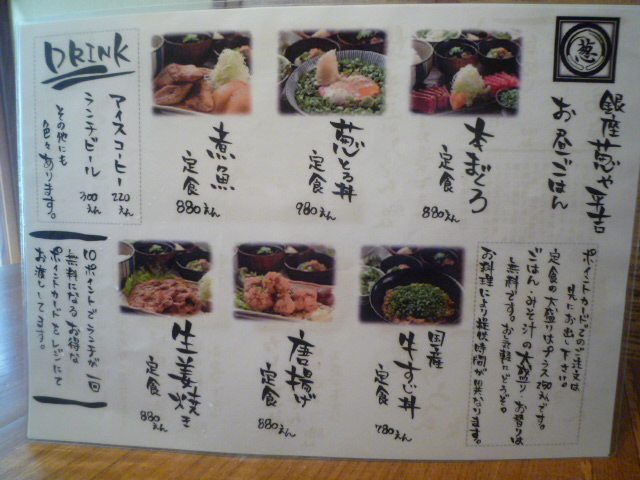 葱
銀座葱や平吉
お昼ごはん
本まぐろ
定食
880えん
葱とろ丼
定食
980えん
煮魚
定食
880えん
DRINK
アイスコーヒー 220えん
ランチビール 300えん
その他にも
色々あります。
ポイントカードのご注文は
先にお出し下さい。
定食の大盛りはプラス
ごはん・みそ汁の大盛り・お替りは
無料です。お気軽にどうぞ。
お料理により提供時間が異なります。
国産
牛すじ丼
定食
780えん
唐揚げ
定食
880えん
生姜焼き
定食
880えん
10ポイントでランチが一回
無料になるお得な
ポイントカードをレジにて
お渡ししてます。